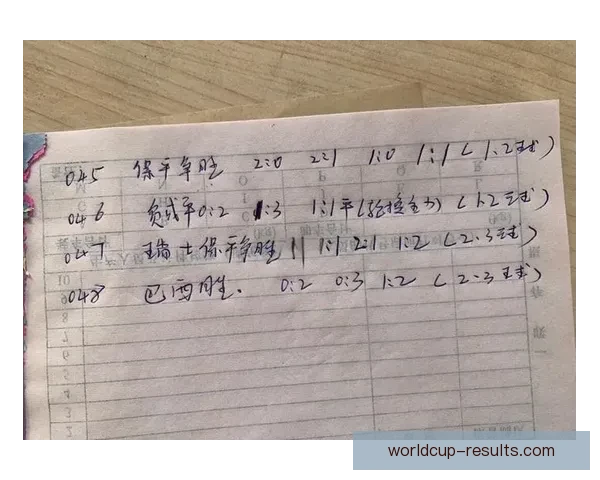 045 保平争胜 2:0 2:1 1:0 1:1 ( 1.2球)
046 负或平 0:2 1:3 1:1平 ( 1.2球)
047 瑞士保平争胜 || 1:1 2:1 1:2 ( 2.3球)
048 巴西胜. 0:2 0:3 1:2 ( 2-3球)
10
9
8
7
6
5
4
3
2
worldcup-results.com